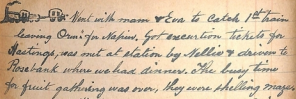 Went with mam & Eva to catch 1st train
leaving Orm' for Napier. Got excursion tickets for
Hastings, was met at station by Nellie & driven to
Rosebank where we had dinner. The busy time
for fruit gathering was over, they were shelling maize